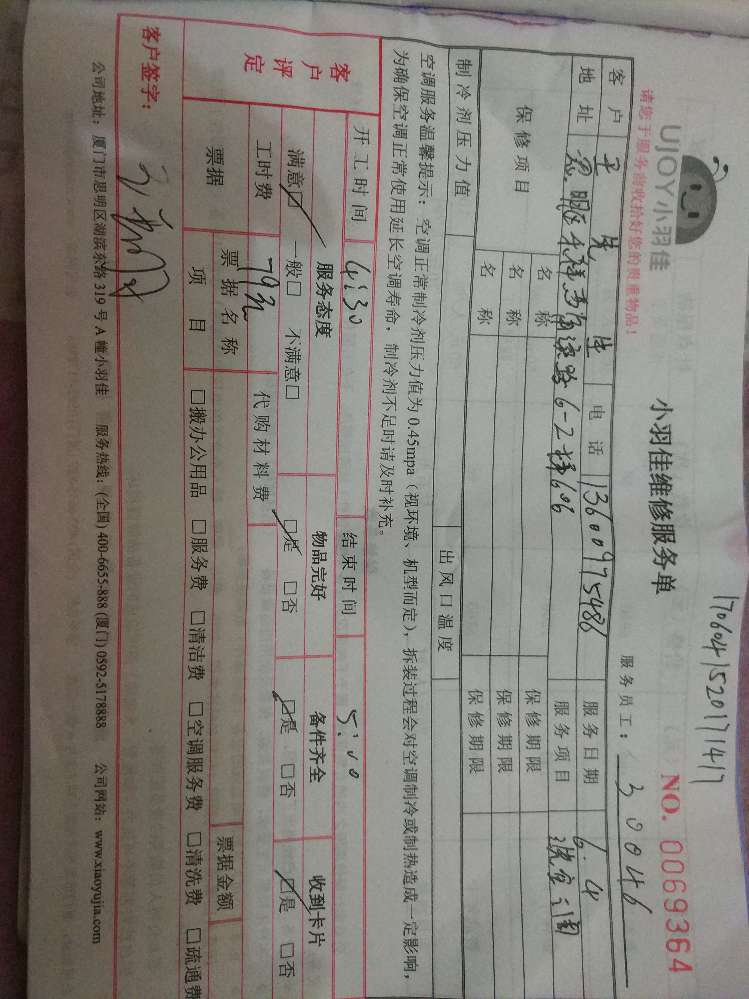 1706041520171417
UJOY小羽佳
小羽佳维修服务单
NO. 0069364
请您于服务前收拾好您的贵重物品!
服务员工: 30046
客户 先生 电话 13600975486 服务日期 6.4
地址 6-2 606 服务项目
保修项目 名称 保修期限
名称 保修期限
名称 保修期限
制冷剂压力值 出风口温度
空调服务温馨提示:空调正常制冷剂压力值为0.45mpa(视环境、机型而定),拆装过程会对空调制冷或制热造成一定影响,
为确保空调正常使用延长空调寿命,制冷剂不足时请及时补充。
开工时间 4:30 结束时间 5:00
客户评定 服务态度 物品完好 备件齐全 收到卡片
满意□ 一般□ 不满意□ □是 □否 □是 □否 □是 □否
工时费 79元 代购材料费
票据 票据名称 票据金额
项目 □搬办公用品 □服务费 □清洁费 □空调服务费 □清洗费 □疏通费
客户签字:
公司地址:厦门市思明区湖滨东路319号A幢小羽佳 服务热线:(全国) 400-6655-888 (厦门) 0592-5178888 公司网站:www.xiaoyujia.com